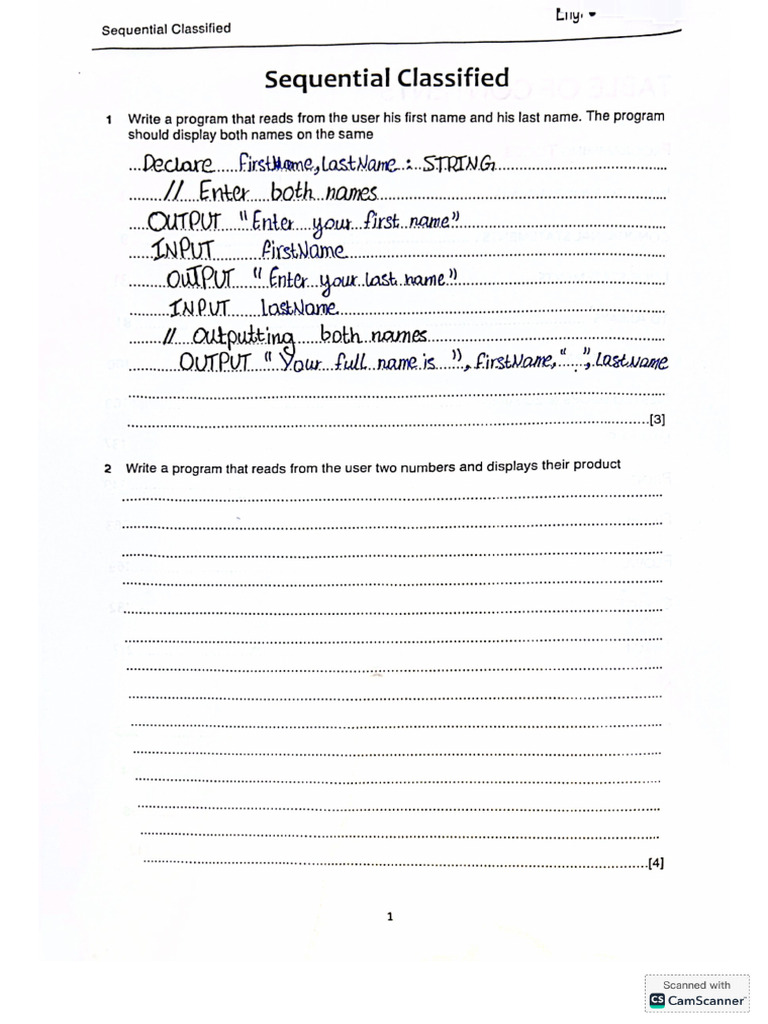 Sequential Classified
Sequential Classified
1 Write a program that reads from the user his first name and his last name. The program
should display both names on the same
Declare firstName, LastName : STRING
// Enter both names
OUTPUT "Enter your first name"
INPUT firstName
OUTPUT "Enter your last name"
INPUT lastName
// Outputting both names
OUTPUT "Your full name is ", firstName, " ", LastName
[3]
2 Write a program that reads from the user two numbers and displays their product
[4]
1
Scanned with
CS CamScanner